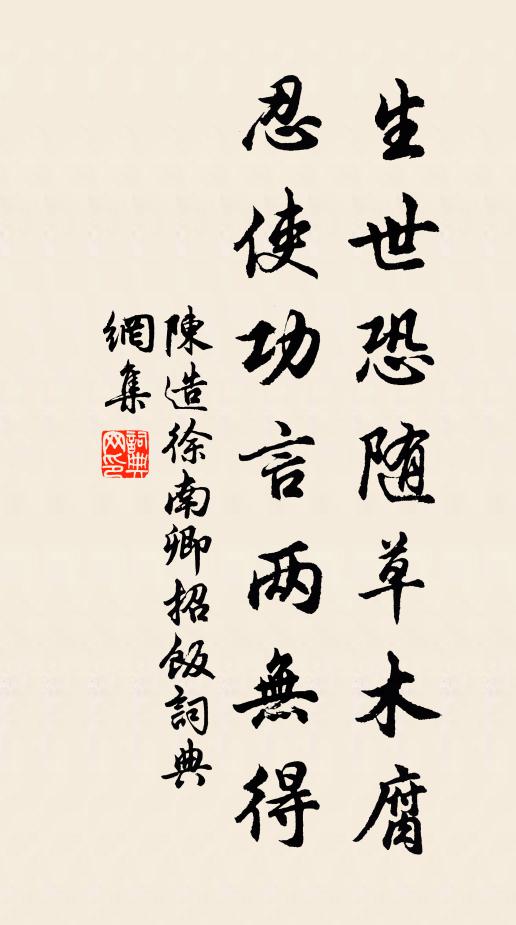 生世恐随草木腐
忍使功言两無得
陳造徐南卿招飯詞典
網集
詞典
网印